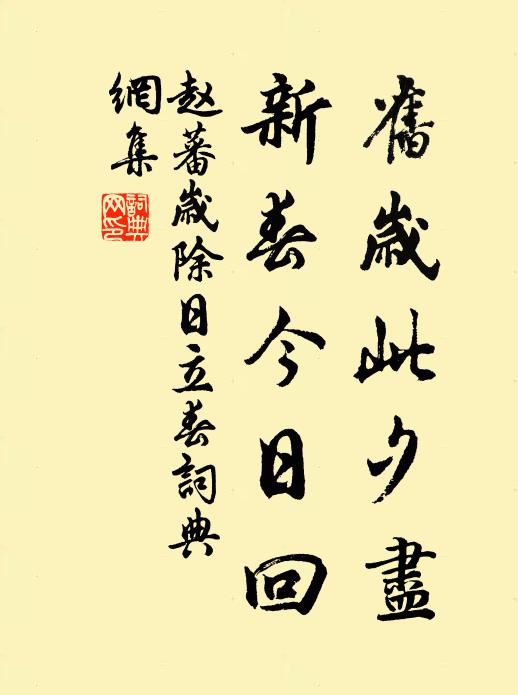 舊歲此夕盡
新春今日回
赵蕃歲除日立春詞典
網集
詞典
网印